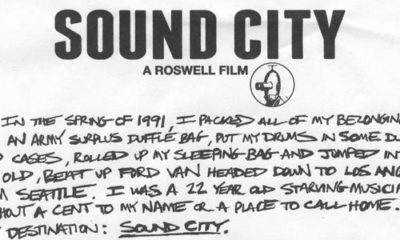 SOUND CITY
A ROSWELL FILM
IN THE SPRING OF 1991, I PACKED ALL OF MY BELONGIN
AN ARMY SURPLUS DUFFLE BAG, PUT MY DRUMS IN SOME D
CASES, ROLLED UP MY SLEEPING BAG AND JUMPED INT
OLD, BEAT UP FORD VAN HEADED DOWN TO LOS ANG
M SEATTLE. I WAS A 22 YEAR OLD STARVING MUSICIA
HOUT A CENT TO MY NAME OR A PLACE TO CALL HOME.
DESTINATION: SOUND CITY.